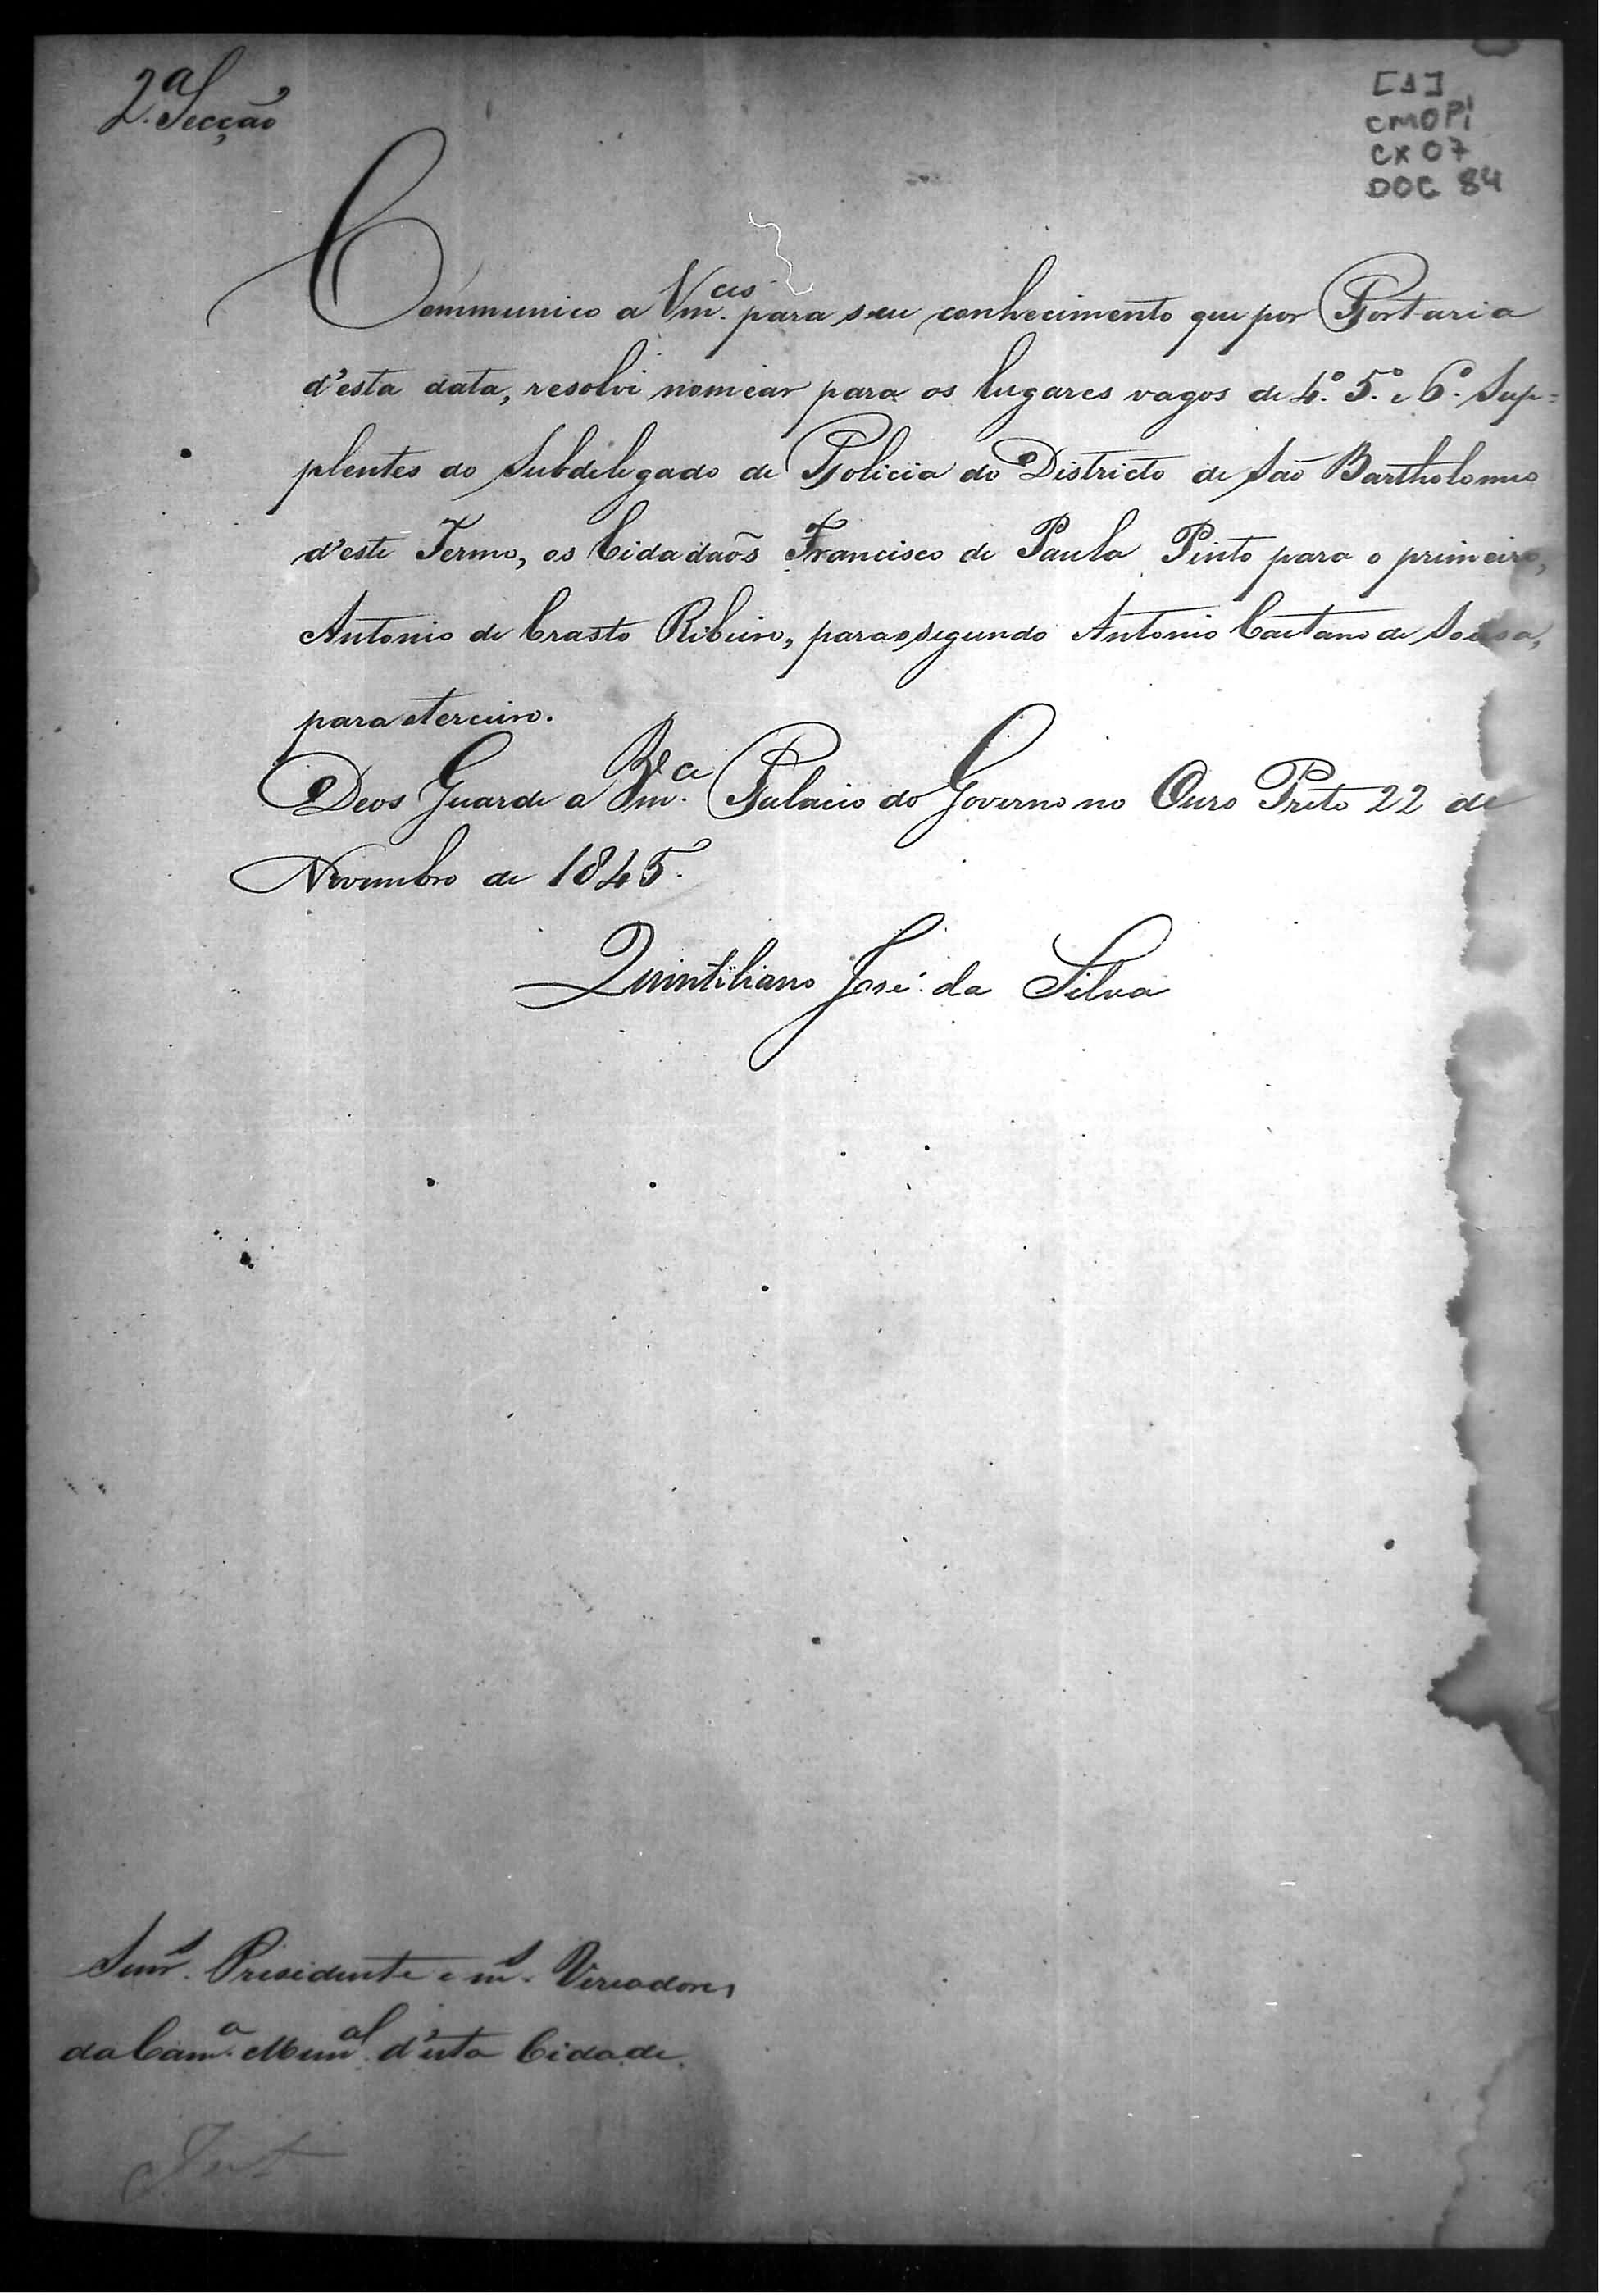 2.ª Secção
[1]
CMOPi
CX 07
DOC 84
Communico a Vm.ces para seu conhecimento que por Portaria
d'esta data, resolvi nomear para os lugares vagos de 4.º 5.º e 6.º Sup=
plentes do Subdelegado de Policia do Districto de São Bartholomeo
d'este Termo, os Cidadaõs Francisco de Paula Pinto para o primeiro,
Antonio de Crasto Ribeiro, para o segundo Antonio Caetano de Sousa,
para o terceiro.
Deos Guarde a Vm.ce Palacio do Governo no Ouro Preto 22 de
Novembro de 1845.
Quintiliano José da Silva
Snrs. Presidente e ms. Vereadores
da Cam.a Mun.al d'esta Cidade.